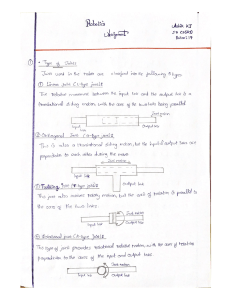 Robotics
Assignment
① • Type of Joints
Joint used in the robots are classified into the following 5 types.
① Linear Joint (L-type joint)
The relative movement between the input link and the output link is a
translational sliding motion, with the axes of the two links being parallel
Joint motion
Input link
Output link
② Orthogonal Joint (O-type joint)
This is also a translational sliding motion, but the input & output links are
perpendicular to each other during the move.
Joint motion
Input link
Output link
③ Joint (T-type joint)
This joint also involves rotary motion, but the axis of rotation is parallel to
the axes of the two links.
Joint motion
Input link
Output link
④ Rotational Joint (R-type joint)
The type of joint provides rotational relative motion, with the axis of rotation
perpendicular to the axes of the input and output links.
Joint motion
Input link
Output link